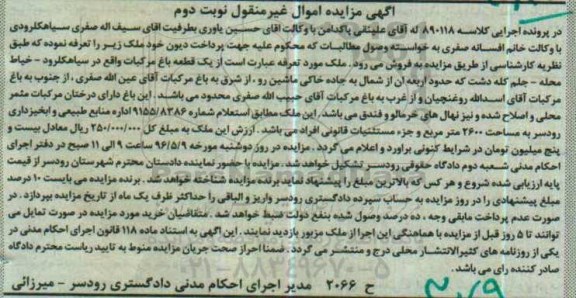 آگهی مزایده اموال غیرمنقول نوبت دوم
در پرونده اجرایی کلاسه ۸۹۰۱۱۸ له آقای علینقی پاکدامن با وکالت آقای حسین یاوری بطرفیت اقای سیف اله صفری سیاهکلرودی
با وکالت خانم افسانه صفری به خواسته وصول مطالبات که محکوم علیه جهت پرداخت دیون خود ملک زیر را تعرفه نموده که طبق
نظریه کارشناسی از طریق مزایده به فروش می رود. ملک مورد تعرفه عبارت است از یک قطعه باغ مرکبات واقع در سیاهکلرود - خیاط
محله - جلم کله دشت که حدود اربعه ان از شمال به جاده خاکی ماشین رو، از شرق به باغ مرکبات آقای عین الله صفری، از جنوب به باغ
مرکبات آقای اسدالله روغنچیان و از غرب به باغ مرکبات آقای حبیب الله صفری محدود می باشد. این باغ دارای درختان مرکبات مثمر
محلی و اصلاح شده و نیز نهال های خرمالو و فندق می باشد. این ملک مطابق استعلام شماره ۹۱۵۵/۸۳۸۶ اداره منابع طبیعی و ابخیزداری
رودسر به مساحت ۲۶۰۰ متر مربع و جزء مستثنیات قانونی افراد می باشد. ارزش این ملک به مبلغ کل ۲۵۰/۰۰۰/۰۰۰ ریال معادل بیست و
پنج میلیون تومان در شرایط کنونی براورد و اعلام می گردد. مزایده در روز دوشنبه مورخه ۹۶/۵/۹ ساعت ۹ الی ۱۱ صبح در دفتر اجرای
احکام مدنی شعبه دوم دادگاه حقوقی رودسر تشکیل خواهد شد. مزایده با حضور نماینده دادستان محترم شهرستان رودسر از قیمت
پایه ارزیابی شده شروع و هر کس که بالاترین مبلغ را پیشنهاد کند برنده مزایده شناخته خواهد شد. برنده مزایده می بایست ۱۰ درصد
مبلغ پیشنهادی را در روز مزایده به حساب سپرده دادگستری رودسر واریز و الباقی را حداکثر ظرف یک ماه از تاریخ مزایده بپردازد. در
صورت عدم پرداخت مابقی وجه، ده درصد وصول شده بنفع دولت ضبط خواهد شد. متقاضیان خرید مورد مزایده در صورت تمایل می
توانند تا ۵ روز قبل از مزایده با هماهنگی این اجرا از ملک مزبور بازدید نمایند. این آگهی به استناد ماده ۱۱۸ قانون اجرای احکام مدنی در
یکی از روزنامه های کثیرالانتشار محلی درج و منتشر می گردد. ضمنا احراز صحت جریان مزایده منوط به تایید ریاست محترم دادگاه
صادر کننده رای می باشد.
ح ۲۰۶۶ مدیر اجرای احکام مدنی دادگستری رودسر - میرزائی
۰۲۱-۸۸۳۴۹۶۷۰-۵